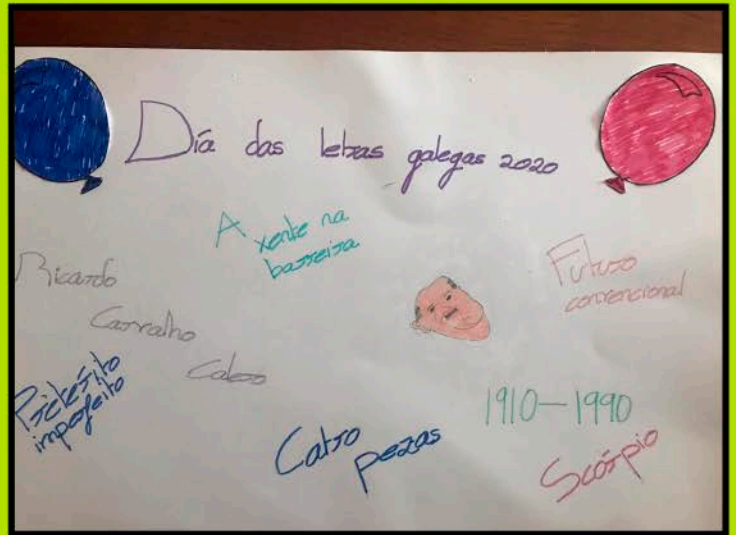 Día das letras galegas 2020
A xente na
barreira
Ricardo
Carvalho
Calero
Futuro
convencional
Pretérito
imperfeito
1910-1990
Catro
pezas
Scórpio